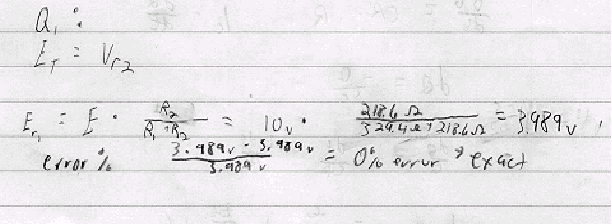 Q1:
ET = Vr2
Er1 = E · R2 / (R1 + R2) = 10v · 218.6 Ω / (329.4 Ω + 218.6 Ω) = 3.989v
error % (3.989v - 3.989v) / 3.989v = 0% error → exact